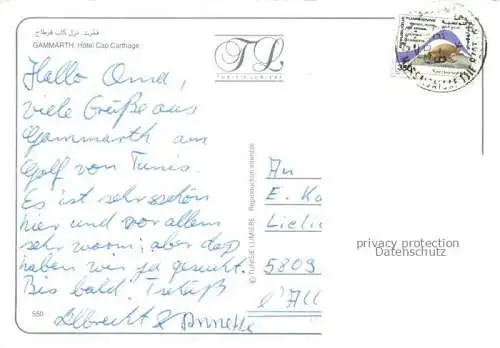 قمرت، نزل كاب قرطاج
GAMMARTH, Hôtel Cap Carthage
TL
TUNISIE LUMIERE
REPUBLIQUE TUNISIENNE
350
Hallo Oma,
viele Grüße aus
Gammarth am
Golf von Tunis.
Es ist sehr schön
hier und vor allem
sehr warm; aber das
haben wir ja gesucht.
Bis bald.
Albrecht & Annette
© TUNISIE LUMIERE Reproduction interdite
An
E. Ka
5809
l'All
privacy protection
Datenschutz
550